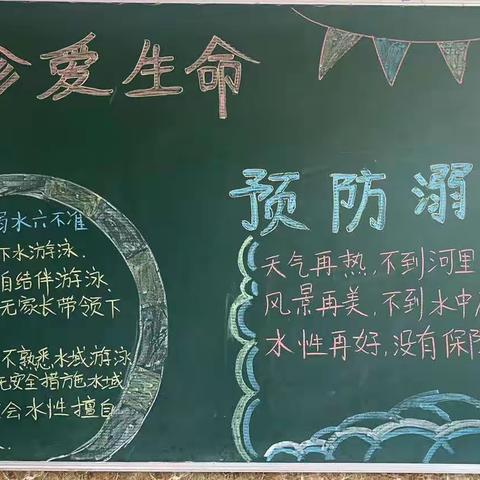 珍爱生命
溺水六不准
下水游泳.
自结伴游泳、
无家长带领下
不熟悉水域游泳
无安全措施水域
会水性擅自
预防溺
天气再热,不到河里
风景再美,不到水中
水性再好,没有保障